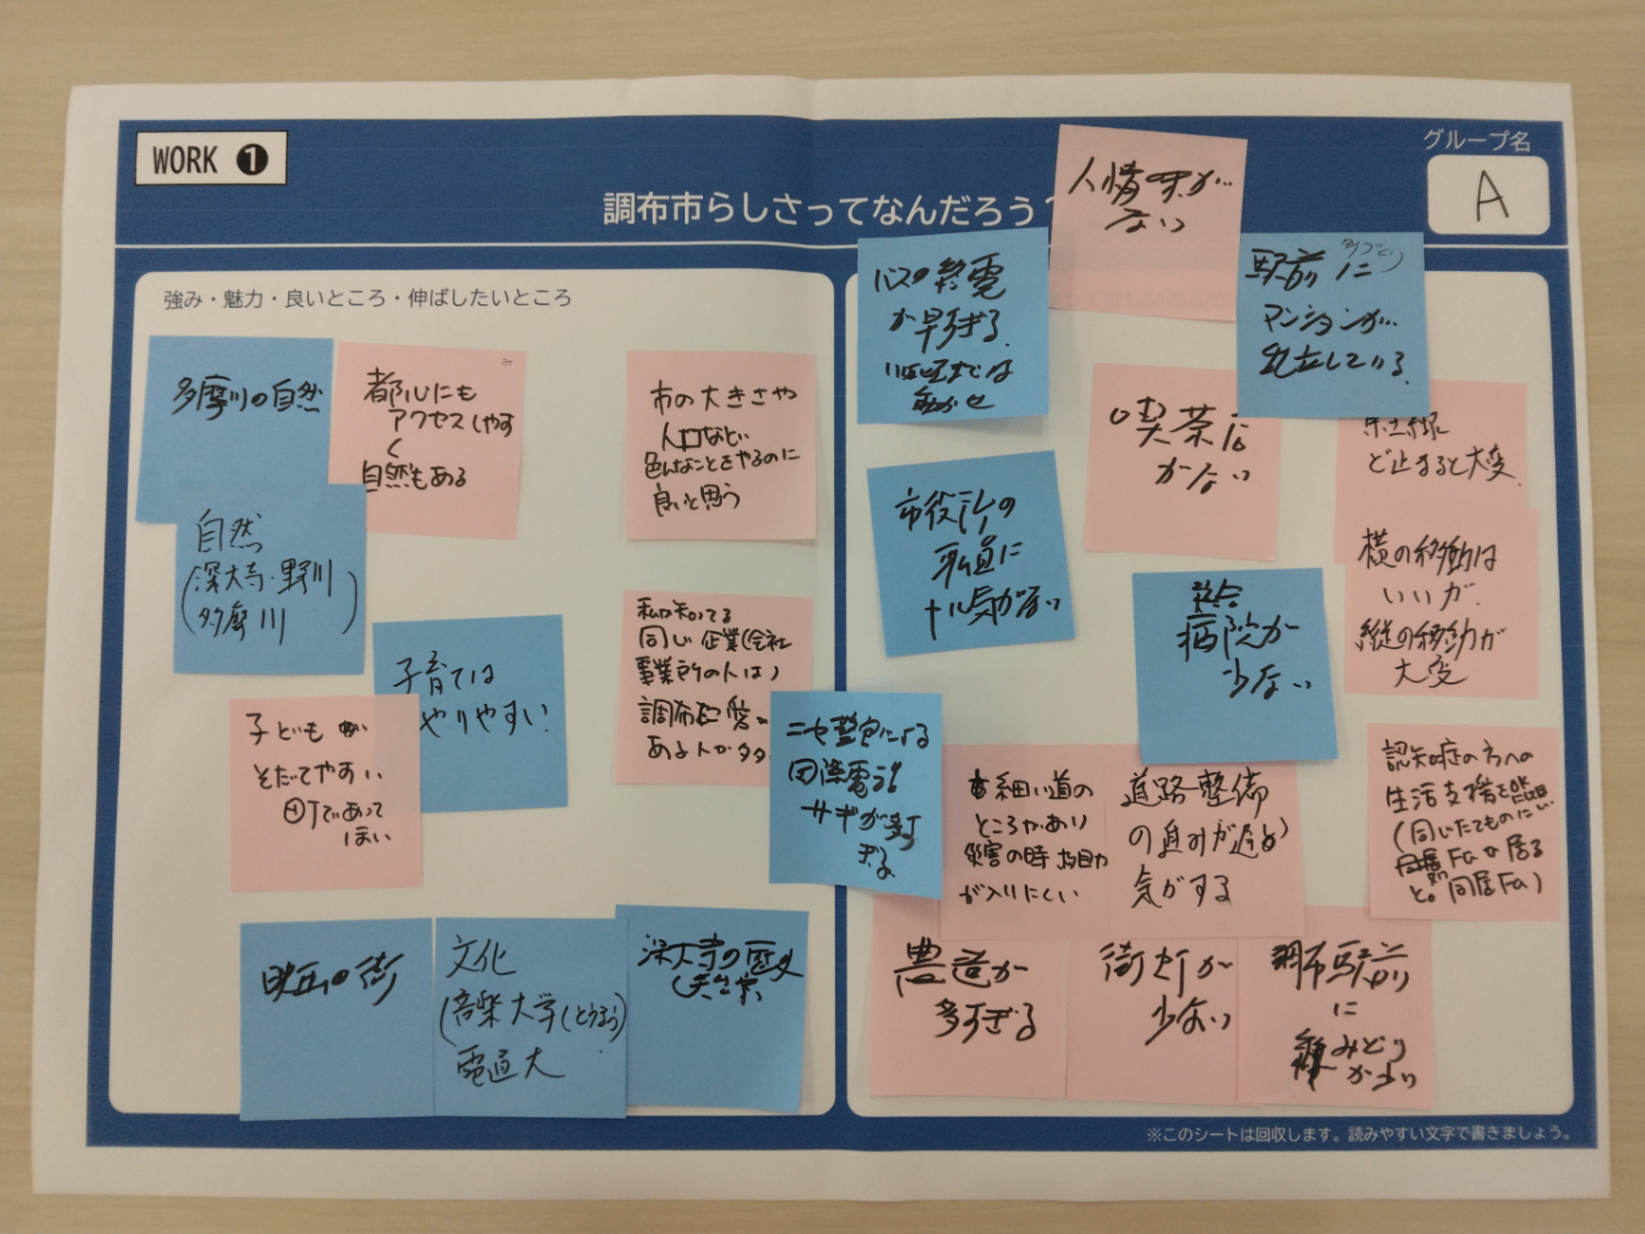 WORK 1
調布市らしさってなんだろう?
グループ名
A
強み・魅力・良いところ・伸ばしたいところ
多摩川の自然
都心にも
アクセスしやす
く
自然もある
市の大きさや
人口など
色んなことをやるのに
良いと思う
自然
(深大寺・野川
多摩川)
子育ては
やりやすい
子どもが
そだてやすい
まちであって
ほしい
私の知ってる
同じ企業(会社
事業所の人は)
調布に愛の
ある人が多
映画の街
文化
(音楽大学(とうほう)
電通大
深大寺の歴史
人情味が
ない
バスの終電
が早すぎる
駅前に
マンションが
乱立している
喫茶店
がない
京王線
ど止まると大変
市役所の
職員に
やる気がない
総合
病院が
少ない
横の移動は
いいが、
縦の移動が
大変
ニセ警官による
国際電話
サギが多
すぎる
細い道の
ところがあり
災害の時
が入りにくい
道路整備
の進みが遅い
気がする
認知症の方への
生活支援を
(同じたてものに
同居Faが居る
と。同居Fa)
農道が
多すぎる
街灯が
少ない
調布駅前
に
みどり
が少い
※このシートは回収します。読みやすい文字で書きましょう。